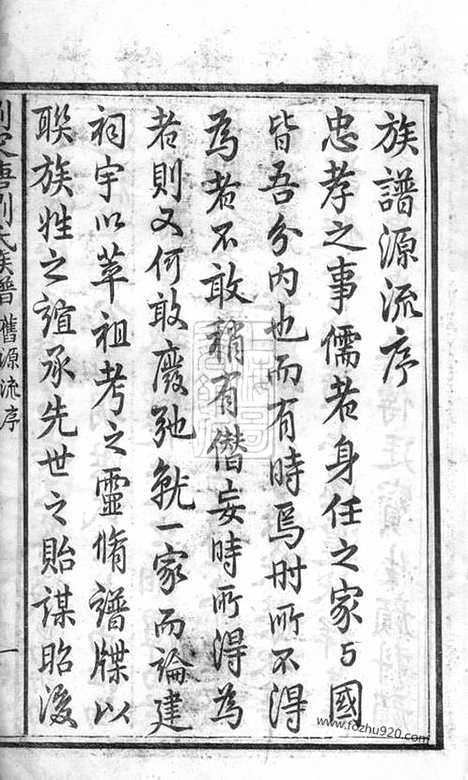 族譜源流序
忠孝之事儒者身任之家与國
皆吾分内也而有時焉时所不得
為者不敢稍有僭妄時所得為
者則又何敢廢弛就一家而論建
祠宇以萃祖考之靈脩譜牒以
聯族姓之誼承先世之貽謀昭後
劉氏族譜 舊源流序
一
www.fozhu920.com